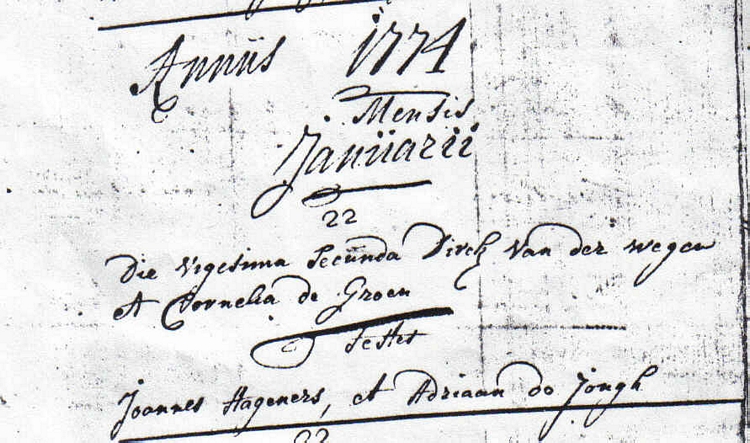 Annus 1774
Mensis
Januarii
22
Die vigesima secunda Dirck van der wegen
et Cornelia de Groen
testes
Joannes Hageners, et Adriaan de Jongh
22